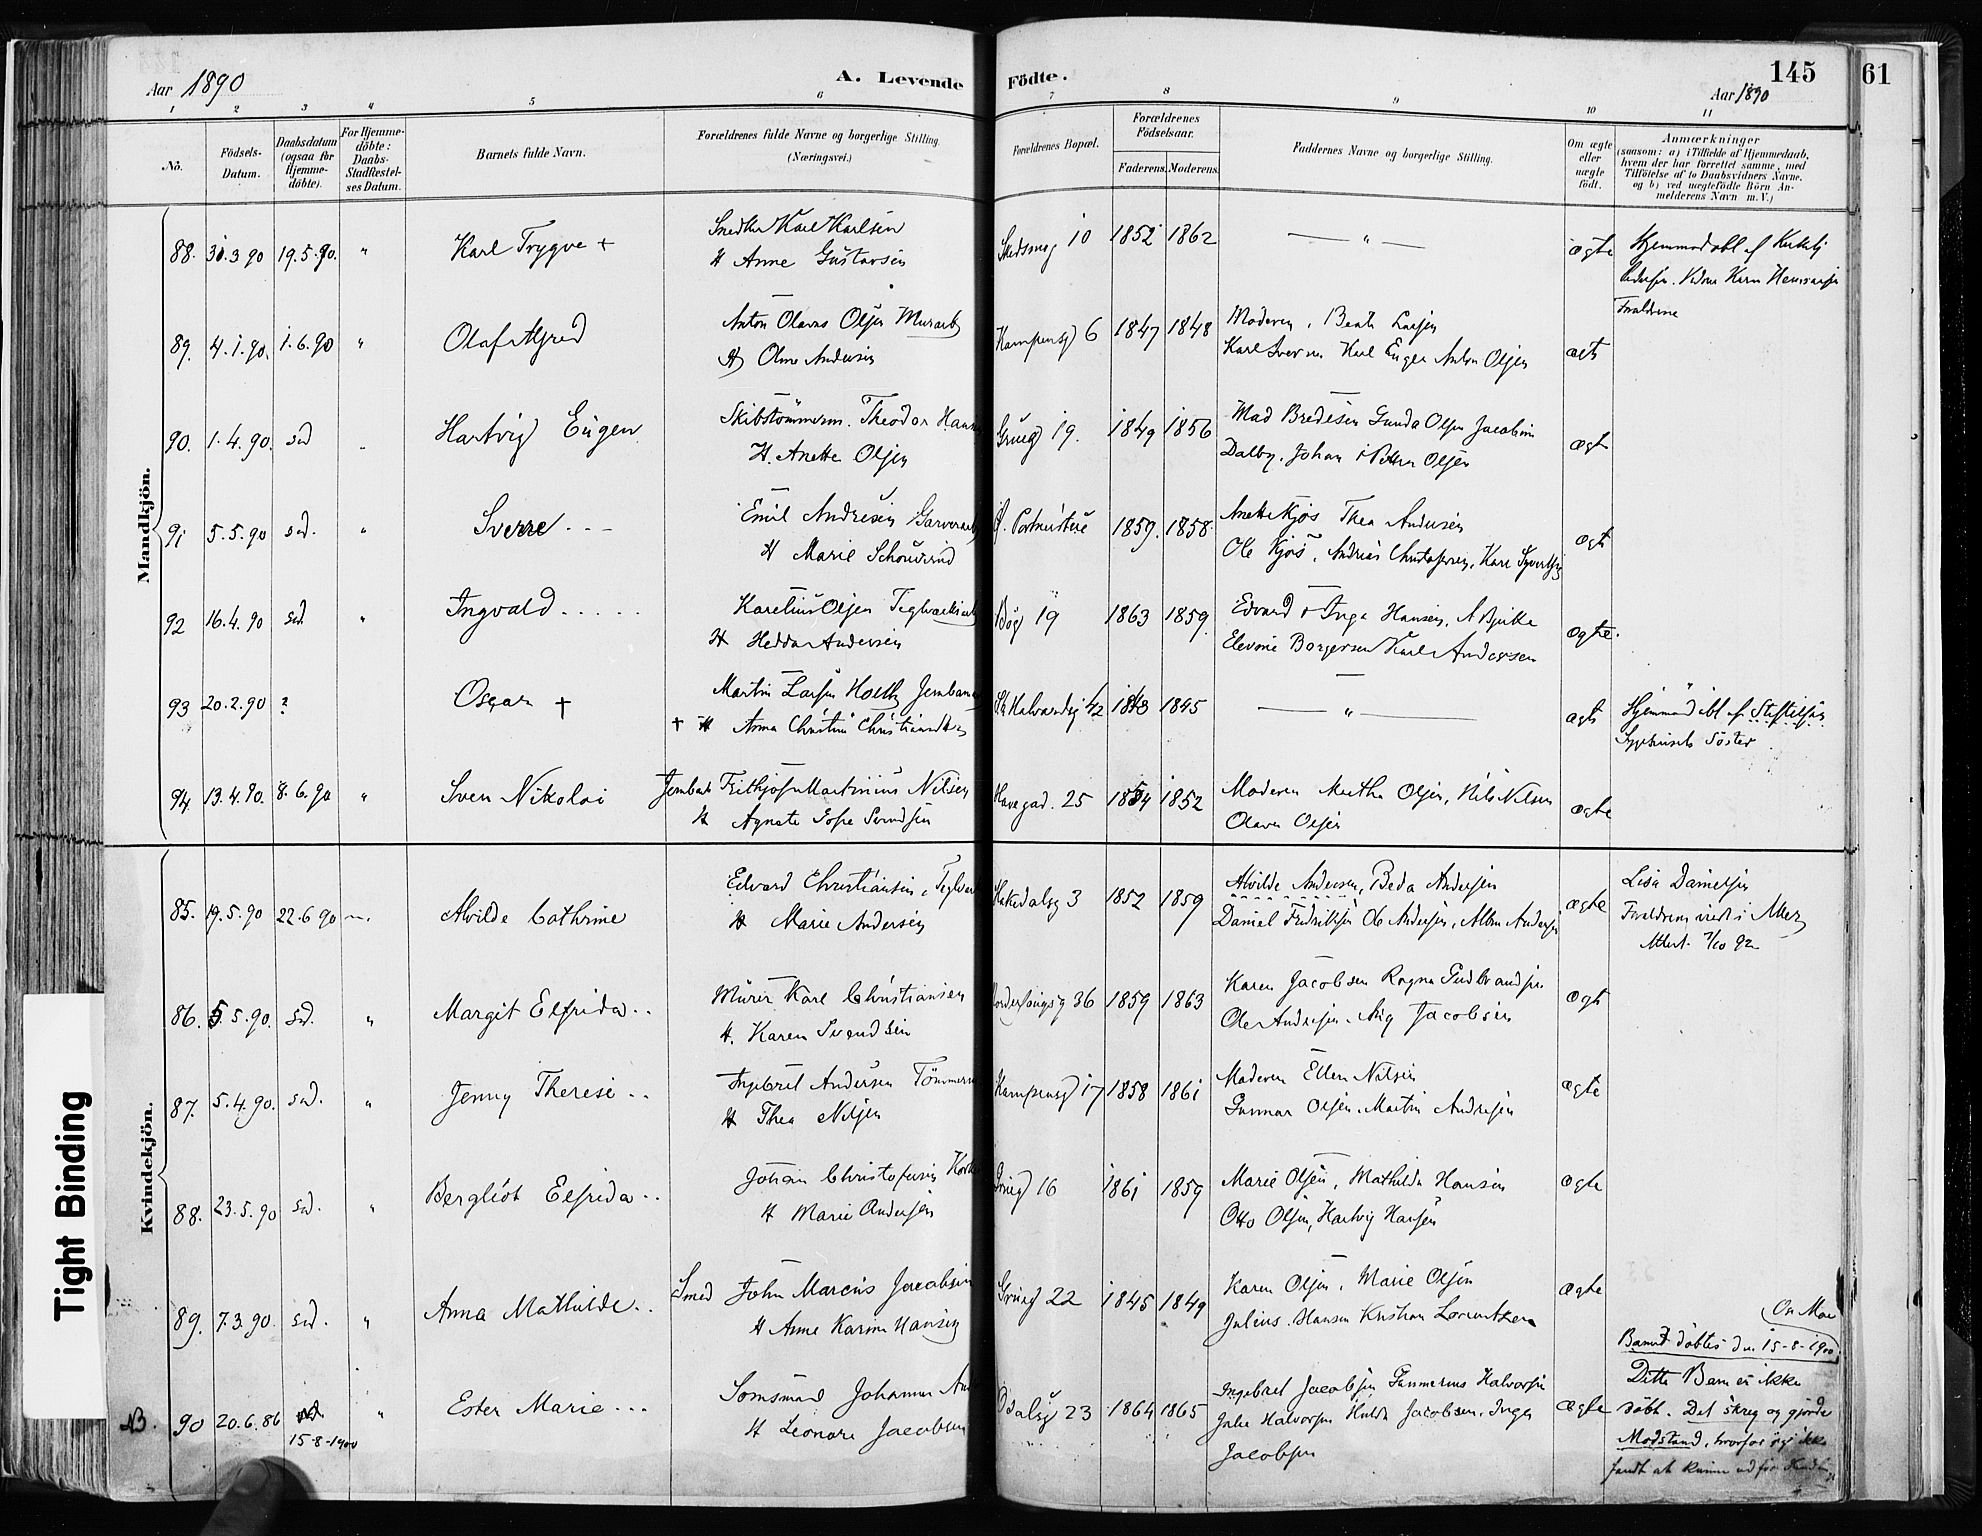 Aar 1890
A. Levende
Födte.
145
61
Aar 1890
1 2 3 4 5 6 7 8 9 10 11
No.
Födsels-Datum.
Daabsdatum (ogsaa for Hjemme-döbte).
For Hjemme-döbte: Daabs-Stadfæstel-ses Datum.
Barnets fulde Navn.
Forældrenes fulde Navne og borgerlige Stilling.
(Næringsvei.)
Forældrenes Bopæl.
Forældrenes Födselsaar.
Faderens. Moderens.
Faddernes Navne og borgerlige Stilling.
Om ægte eller uægte födt.
Anmærkninger
(saasom: a) i Tilfælde af Hjemmedaab, hvem der har forrettet samme, med Tilföielse af to Daabsvidners Navne, og b) ved uægtefödte Börn An-melderens Navn m. V.)
Mandkjön.
88. 31.3 90 19.5.90. " Karl Trygve +
Karl Karlsen
H Anne Gustavsen
10 1852 1862 — " — ægte
Hjemmedöbt af
Forældrene
89. 4.1.90. 1.6.90 " Olaf Alfred
Anton Olavus Olsen Murarb
H Oline Andersen
Kampensg 6 1847 1848
Moderen, Beate Larsen
Karl Eugen Anton Olsen
ægte
90. 1.4.90. sd " Hartvig Eugen
Skibstömmerm. Theodor Hansen
H. Anette Olsen
Grueg 19. 1849 1856
Gunda Olsen Jacobine
Dalby, Johan & Petter Olsen
ægte
91 5.5.90 sd. " Sverre . . —
Emil Andresen Garverarb
H Marie
1859. 1858.
Anette Kjos Thea Andersen
Ole Kjos, Andreas Christophersen, Karl
ægte
92 16.4.90 sd. " Ingvald . . . . .
Karelius Olsen Teglværksarb
H Hedda Andersen
Bög 19 1863 1859.
Edvard & Inga Hansen, A Bjerke
Elevine Borgersen Karl Andersen
ægte.
93 20.2.90 ? Oscar +
Martin Larsen
+ H Anna Christine
St Halvardsg 42 1843 1845 — " — ægte
Hjemmedöbt af Stiftelsen
Sygehusets Söster
94 13.4.90. 8.6.90 " Sven Nikolai
Jernbarb Frithjof Martinius Nilsen
H Agnete Sofie Svendsen
Havegad. 25 1854 1852
Moderen Martha Olsen, Nils Nilsen
Olava Olsen
ægte
Kvindekjön.
85. 19.5.90 22.6 90 Alvilde Cathrine
Edvard Christiansen,
H Marie Andersen
Hakedalsg 3 1852 1859
Alvilde Andersen, Beda Andersen
Daniel Fredriksen Ole Andersen, Albin Andersen
ægte
Lisa Danielsen
Forældrene viet i
Attest. 7/10 92
86. 5.5.90. sd. " Margit Elfrida . .
Murer Karl Christiansen
H. Karen Svendsen
36 1859 1863
Karen Jacobsen Ragna Gudbrandsen
Ole Andresen. Aug Jacobsen
ægte
87. 5.4.90. sd. " Jenny Therese . .
Ingebret Andersen Tömmerm
H Thea Nilsen
Kampensg 17 1858 1861
Moderen Ellen Nilsen
Gunnar Olsen. Martin Andresen
ægte
88. 23.5.90 sd. " Bergliot Elfrida . .
Johan Christofersen
H Marie Andersen
Grueg 16 1861 1859
Marie Olsen, Mathilda Hansen
Otto Olsen, Hartvig Hansen
ægte
89. 7.3.90. sd. " Anna Mathilde . .
Smed John Marcus Jacobsen
H Anne Karine Hansen
Grueg 22 1845 1849
Karen Olsen, Marie Olsen
Julius Hansen Kristian Lorentzen
ægte
NB. 90 20.6.86 sd. 15-8-1900 " Ester Marie . . .
Johannes
H Leonore Jacobsen
Ödalsg 23 1864 1865
Ingebret Jacobsen Halvorsen
Julie Halvorsen Hulda Jacobsen, Inga
Jacobsen
ægte
Barnet döbtes den 15-8-1900
Dette Barn er ikke
döbt. Det skreg og gjorde
Modstand, hvorfor jeg ikke
fandt at kunne udföre
Tight Binding